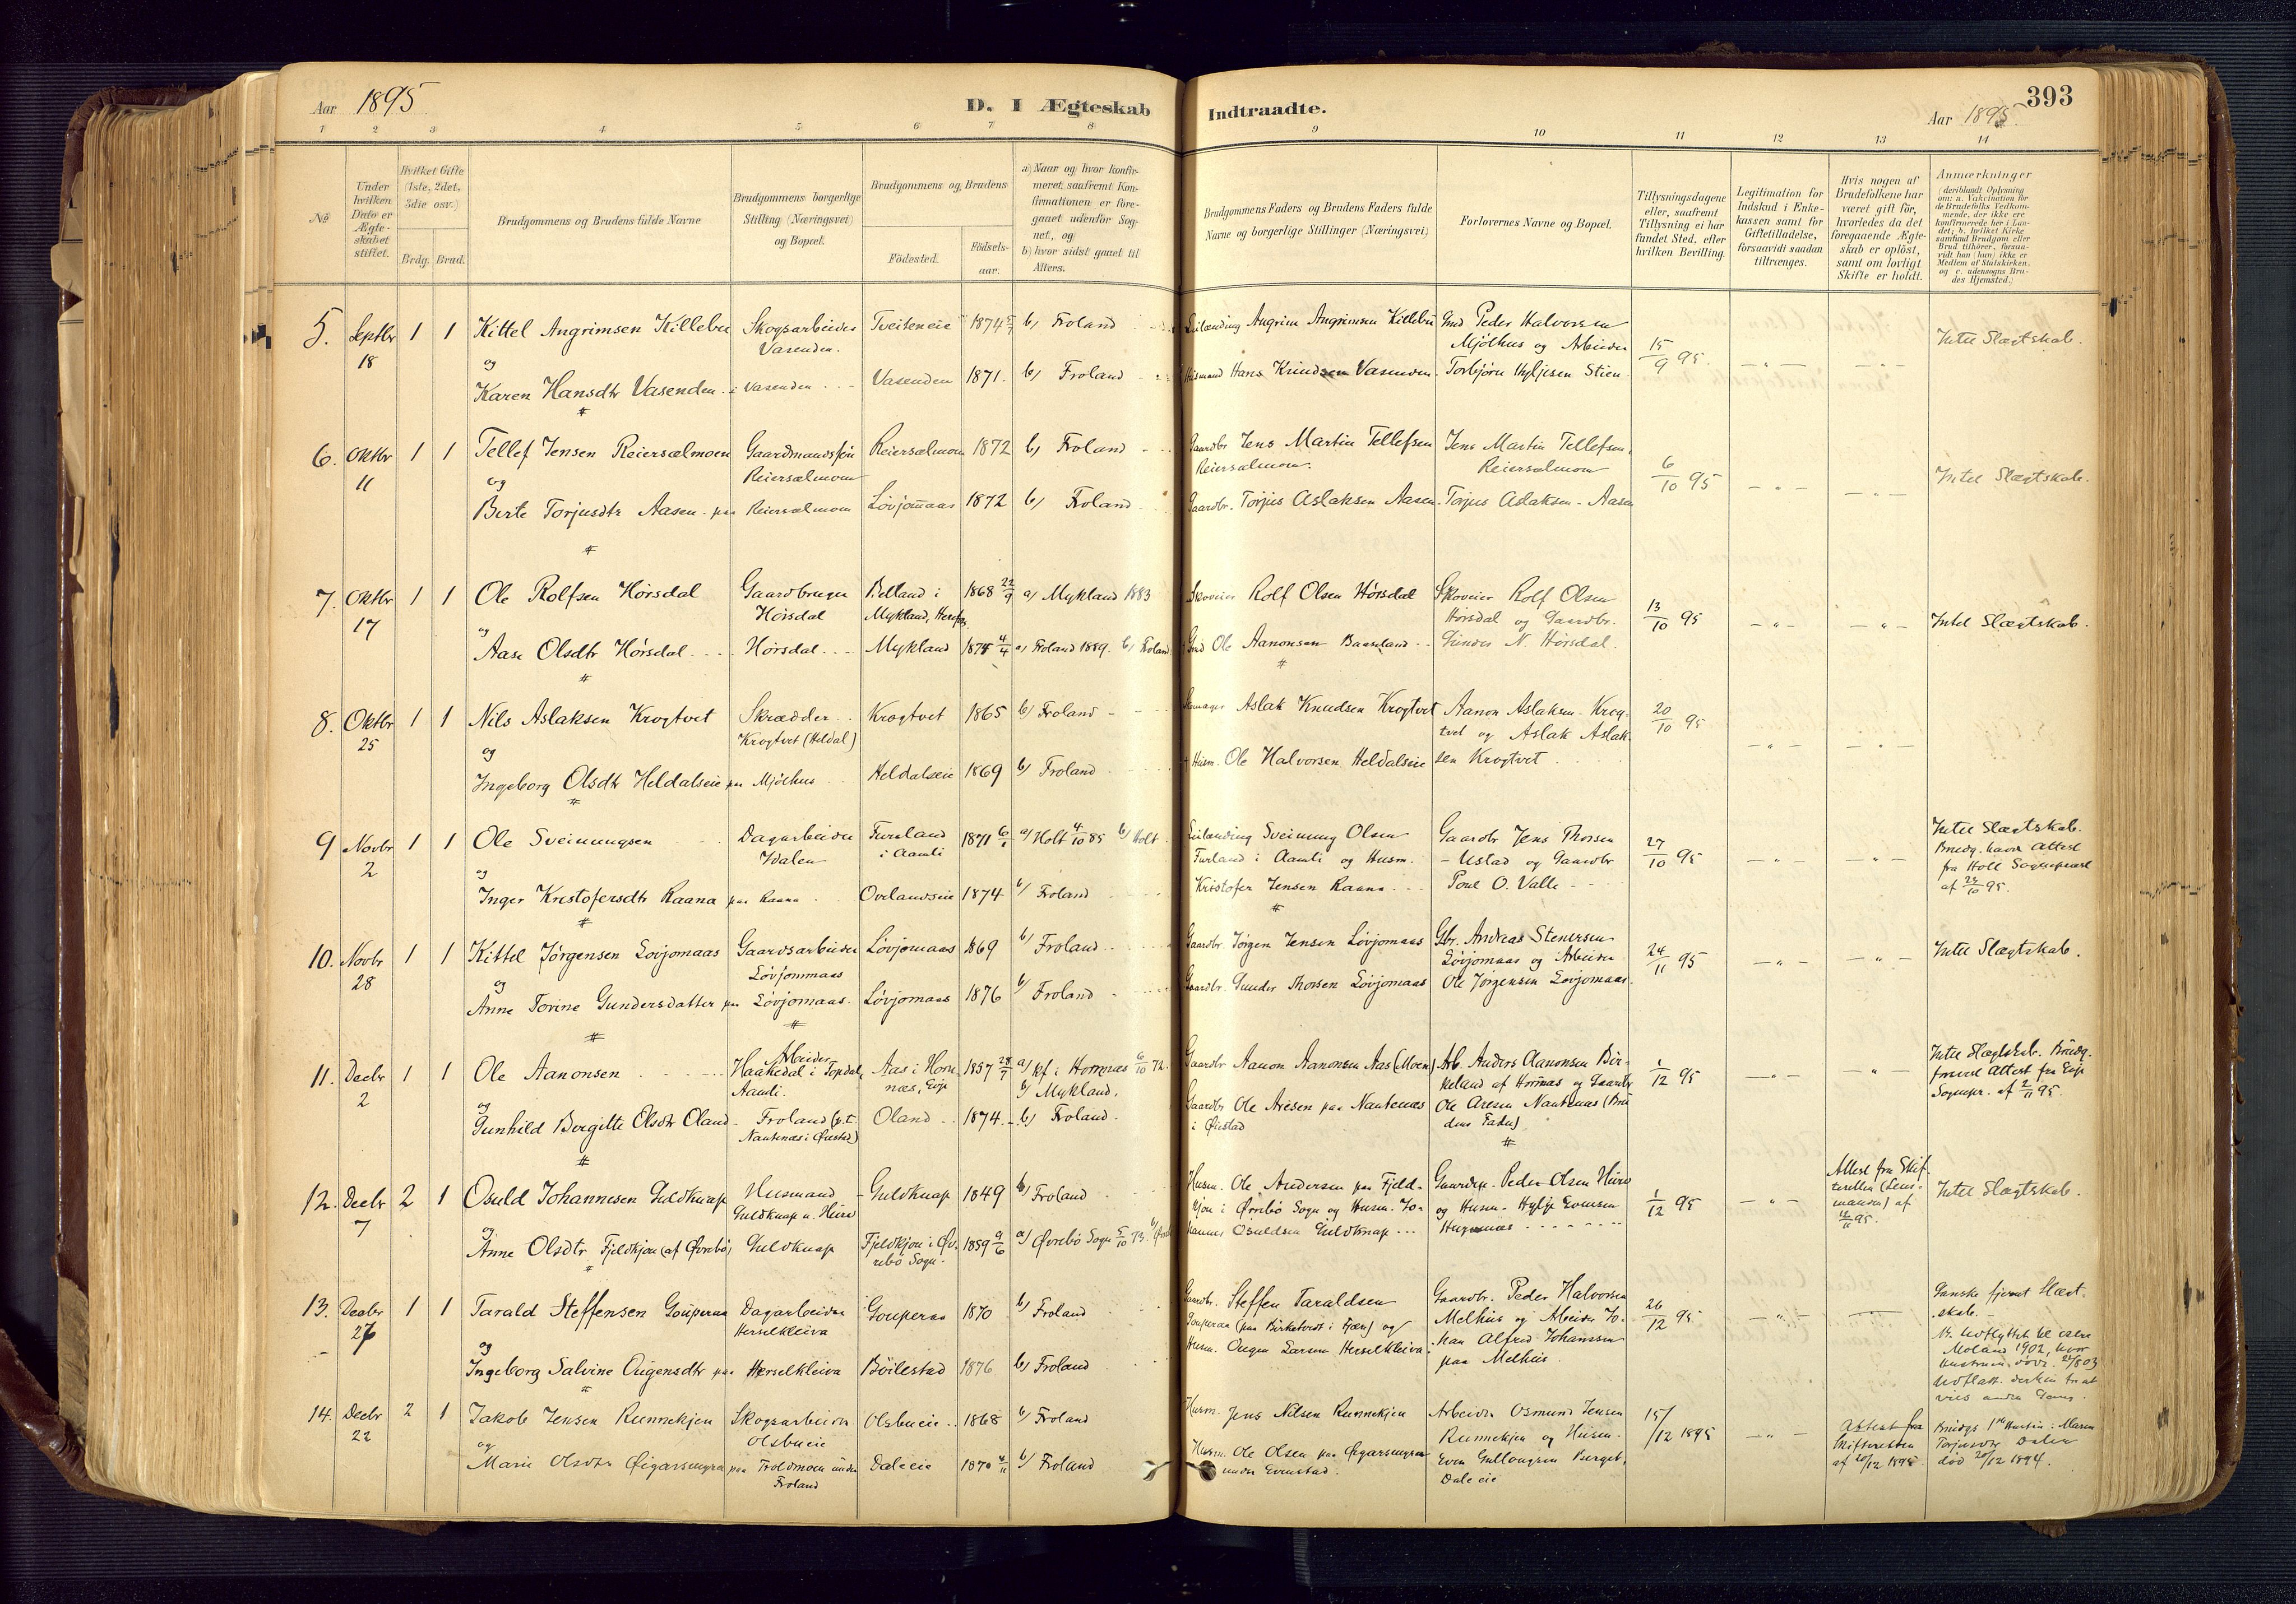 Aar 1895
D. I Ægteskab
Indtraadte.
Aar 1895.
393
1 2 3 4 5 6 7 8 9 10 11 12 13 14
No
Under hvilken Dato er Ægteskabet stiftet.
Hvilket Gifte (1ste, 2det, 3die osv.)
Brdg. Brud.
Brudgommens og Brudens fulde Navne
Brudgommens borgerlige Stilling (Næringsvei) og Bopæl.
Brudgommens og Brudens
Fødested.
Fødselsaar.
a) Naar og hvor konfirmeret, saafremt Konfirmationen er foregaaet udenfor Sognet, og
b) hvor sidst gaaet til Alters.
Brudgommens Faders og Brudens Faders fulde Navne og borgerlige Stillinger (Næringsvei)
Forlovernes Navne og Bopæl.
Tillysningsdagene eller, saafremt Tillysning ei har fundet Sted, efter hvilken Bevilling.
Legitimation for Indskud i Enkekassen samt for Giftetilladelse, forsaavidt saadan tiltrænges.
Hvis nogen af Brudefolkene har været gift før, hvorledes da det foregaaende Ægteskab er opløst, samt om lovligt Skifte er holdt.
Anmærkninger
(deriblandt Oplysning om: a. Vakcination for de Brudefolks Vedkommende, der ikke ere konfirmerede her i Landet; b. hvilket Kirkesamfund Brudgom eller Brud tilhører, forsaavidt han (hun) ikke er Medlem af Statskirken, og c. udensogns Brudes Hjemsted.)
5. Septbr 18 1 1 Kittel Angrimsen Killebu Skogsarbeider Vasenden. Tveiteneie 1874 b) Froland
Leilænding Angrim Angrimsen Killebu Gmd Peder Halvorsen Mjølhus og Arbeider 15/9 95. - " - - " - Intet Slægtskab.
og
Karen Hansdtr Vasenden i Vasenden Vasenden 1871. b) Froland
Husmand Hans Knudsen Vasenden. Torbjørn Hyljesen Stien
6. Oktbr 11 1 1 Tellef Jensen Reiersælmoen Gaardmandssøn Reiersælmoen Reiersælmoen 1872 b) Froland
Gaardbr Jens Martin Tellefsen Reiersælmoen. Jens Martin Tellefsen, Reiersælmoen 6/10 95 - " - - " - Intet Slægtskab.
og
Berte Torjusdtr Aasen paa Reiersælmoen Løvjomaas 1872 b) Froland
Gaardbr. Torjus Aslaksen Aasen. Torjus Aslaksen Aasen
7. Oktbr 17 1 1 Ole Rolfsen Hørsdal Gaardbruger Hørsdal Belland i Mykland, 1868 22/9 a) Mykland 1883
Skoveier Rolf Olsen Hørsdal Skoveier Rolf Olsen Hørsdal og Gaardbr. 13/10 95 - " - - " - Intet Slægtskab.
og
Aase Olsdtr Hørsdal Hørsdal Mykland 1875 4/4 a) Froland 1889. b) Froland
Gmd Ole Aanonsen Baaseland Gunder N. Hørsdal.
8. Oktbr 25 1 1 Nils Aslaksen Krogtvet Skrædder Krogtvet (Heldal) Krogtvet 1865 b) Froland
Aslak Knudsen Krogtvet Aanon Aslaksen Krogtvet og Aslak Aslaksen Krogtvet 20/10 95 - " - - " -
og
Ingeborg Olsdtr Heldalseie paa Mjølhus Heldalseie 1869 b) Froland
Husm. Ole Halvorsen Heldalseie
9 Novbr 2 1 1 Ole Sveinungsen Dagarbeider Furuland i Aamli 1871 a) Holt 4/10 85 b) Holt.
Leilænding Sveinung Olsen Furland i Aamli og Husm. Gaardbr Jens Thorsen Ustad og Gaardbr 27/10 95 - " - - " - Intet Slægtskab. Brudg. havde Attest fra Holt Sognepræst af 24/10 95.
og
Inger Kristofersdtr Raana paa Raana Ovelandseie 1874 b) Froland
Kristofer Jensen Raana Povel O. Valle
10. Novbr 28 1 1 Kittel Jørgensen Løvjomaas Gaardsarbeider Løvjommaas Løvjomaas 1869 b) Froland
Gaardbr. Jørgen Jensen Løvjomaas Gbr. Andreas Stenersen Løvjomaas og Arbeider 24/11 95 - " - - " - Intet Slægtskab.
og
Anne Torine Gundersdatter paa Løvjomaas. Løvjomaas 1876 b) Froland
Gaardbr. Gunder Thorsen Løvjomaas Ole Jørgensen Løvjomaas.
11. Decbr 2 1 1 Ole Aanonsen Arbeider Haakedal i Topdal, Aamli. Aas i Hornnæs, Evje 1857 28/7 a) kf. i Hornnæs 6/10 72. b) Mykland.
Gaardbr Aanon Aanonsen Aas (Moen) Arb. Anders Aanonsen Birkeland af Hornnæs og Gaardbr 1/12 95 - " - - " - Intet Slægtskab. Brudg. foreviste Attest fra Evje Sognepr. af 2/11 95.
og
Gunhild Bergitte Olsdtr Oland Froland (p.t. Nautenæs i Øiestad) Oland 1874 b) Froland
Gaardbr Ole Aresen paa Nautenæs i Øiestad Ole Aresen Nautenæs (Brudens Fader)
12. Decbr 7 2 1 Osuld Johannesen Guldknap Husmand Guldknap 1849 b) Froland
Husm. Ole Andersen paa Fjeldkjøn i Øvrebø Sogn og Husm. Johannes Osuldsen Guldknap Gaardbr. Peder Olsen og Husm. Hylje Evensen 1/12 95 - " - Attest fra Skifteretten (Lensmanden) af 95. Intet Slægtskab.
og
Anne Olsdtr Fjeldkjøn (af Øvrebø) Guldknap Fjeldkjøn i Øvrebø Sogn. 1859 9/6 a) Øvrebø Sogn 5/10 73.
13. Decbr 27 1 1 Tarald Steffensen Gouperaa Dagarbeider Herselkleiva Gouperaa 1870 b) Froland
Gaardbr. Steffen Taraldsen Gouperaa (paa Birketvedt i Fjære) og Gaardbr. Peder Halvorsen Melhus og Arbeider Johan Alfred Johanssen paa Melhus. 26/12 95 - " - Ganske fjernt Slægtskab.
og
Ingeborg Salvine Ougensdtr paa Herselkleiva Bøilestad 1876 b) Froland
Husm. Ougen Larsen Herselkleiva Moland 1902, hvor Hustruen døde
14. Decbr 22 2 1 Jakob Jensen Runnekjen Skogsarbeider Olsbueie Olsbueie 1868 b) Froland
Husm. Jens Nilsen Runnekjen Arbeider Osmund Jensen Runnekjen og Husm. 15/12 1895 - " - Attest fra Skifteretten af 20/12 1895. Brudgs 1ste Hustru: Maren Torjusdtr Dalen død 20/12 1894.
og
Marie Olsdtr Øigarsmyra paa Froldmoen under Froland Daleeie 1870 4/11 b) Froland
Husm. Ole Olsen paa Øigarsmyra under Evenstad. Even Gullougsen Berget, Daleeie